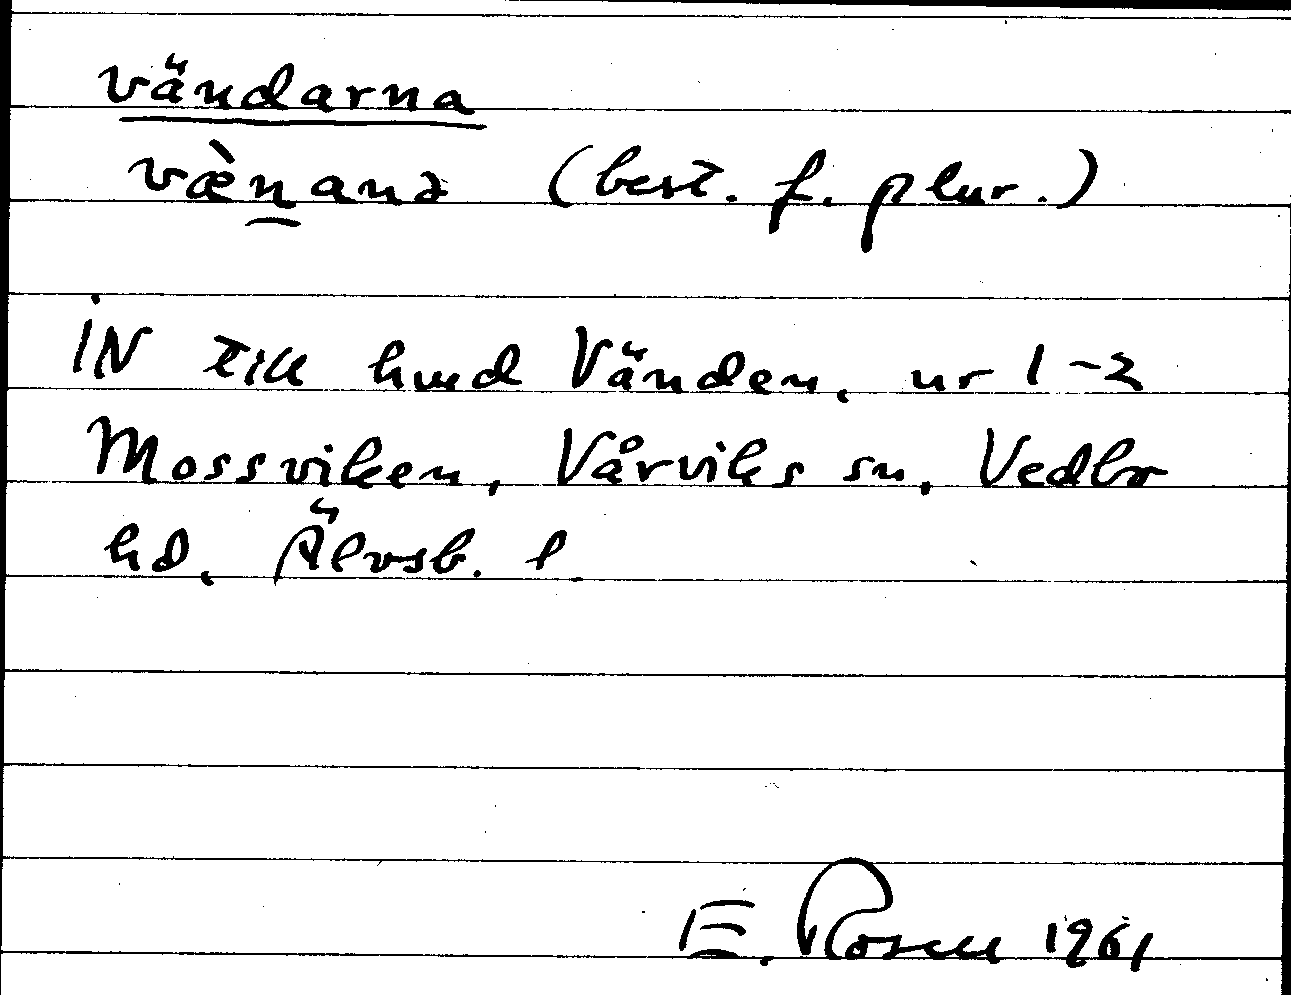 vändarna
væ̀n̲anə (best. f. plur.)
IN till hmd Vänden, nr 1-2
Mossviken, Vårviks sn, Vedbo
hd, Älvsb. l
E. Rosell 1961